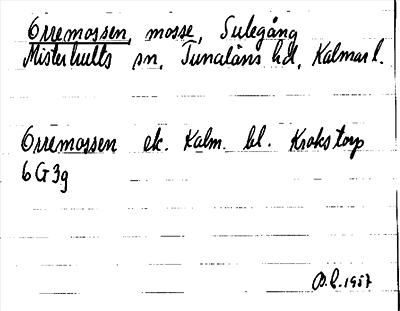 Orremossen, mosse, Sulegång
Misterhults sn, Tunaläns hd, Kalmar l.
Orremossen ek. Kalm. bl. Krokstorp
6G3g
1957